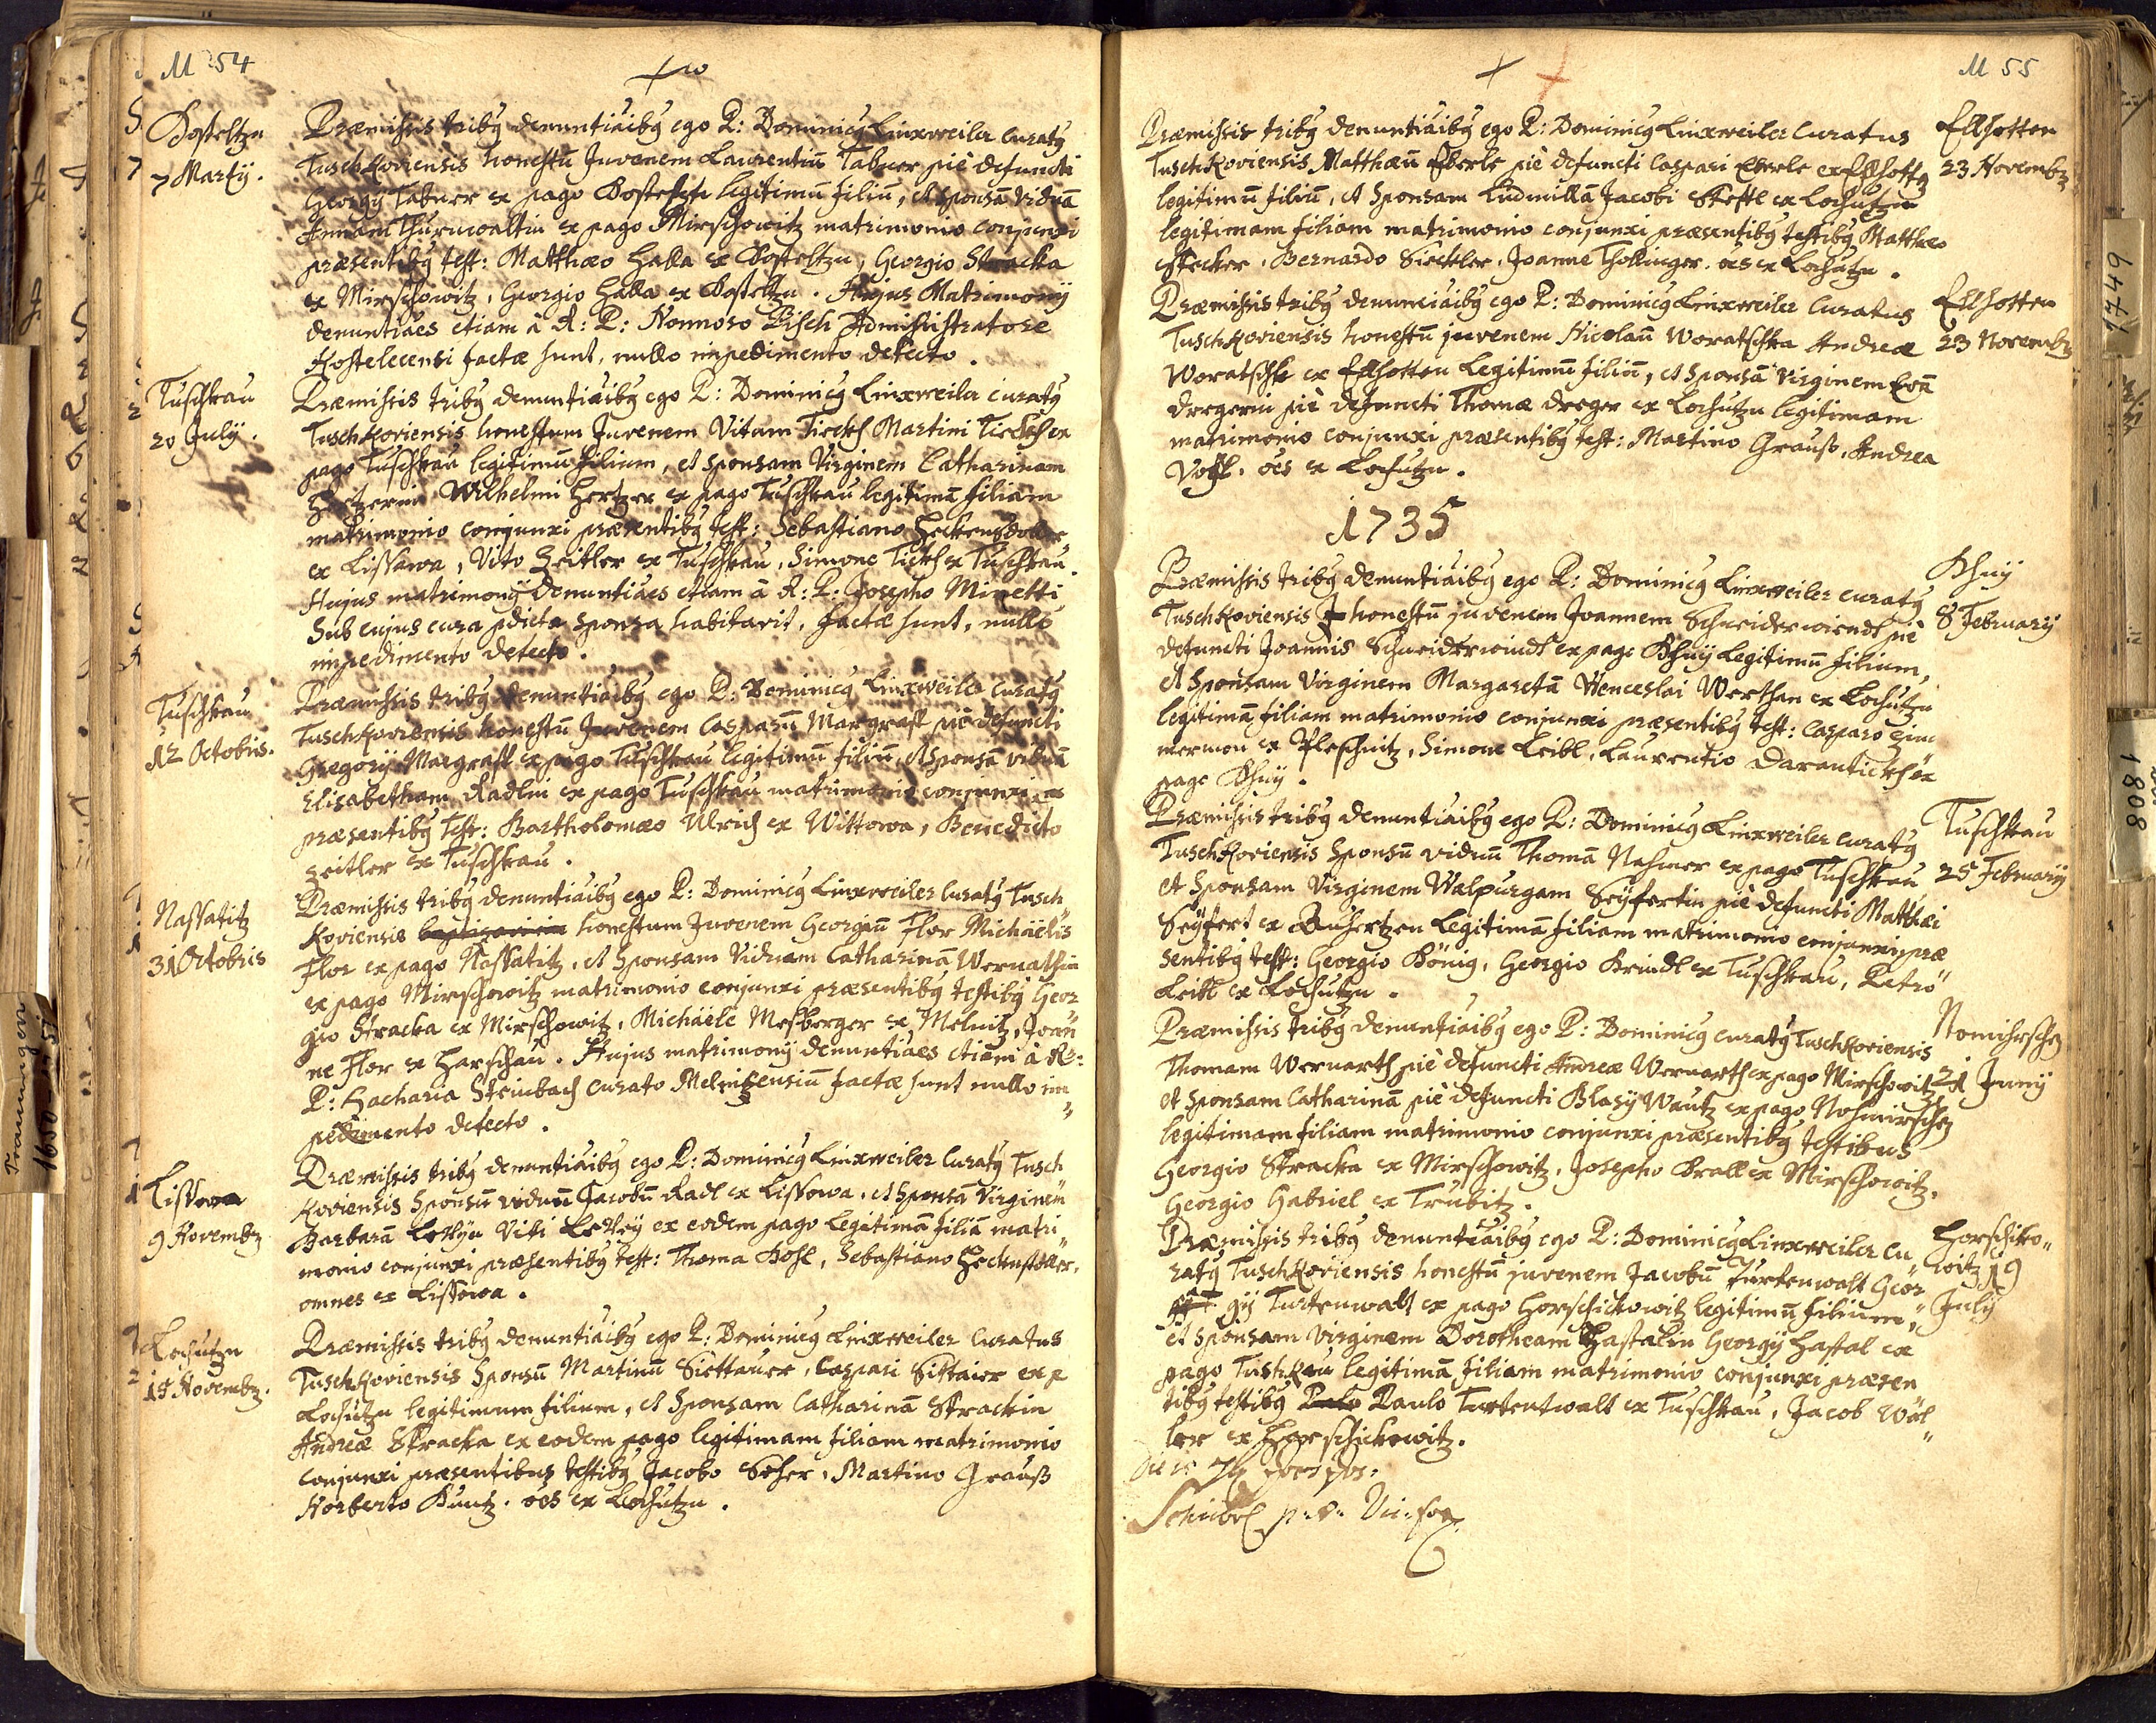 M 54
Dosteltzn
7 Martij.
Præmissis tribq denuntiãibq ego P: Dominicq Linxweiler Curatq
Tuschkoviensis honestũ Juvenem Laurentiũ Tabner piè defuncti
Georgij Tabner ex pago legitimũ filiũ, et sponsã viduã
Annam Thurnwaltin ex pago Mirschowitz matrimonio conjunxi
præsentibq test: Matthæo Halla ex Dosteltzn, Georgio Stracka
ex Mirschowitz, Georgio Halla ex Dosteltzn. Hujus Matrimonij
denuntiães etiam à R: P: Nonnoso Administratore
Kostelecensi factæ sunt, nullo impedimento detecto.
Tuschkau
20 Julij.
Præmissis tribq denuntiãibq ego P: Dominicq Linxweiler Curatq
Tuschkoviensis honestum Juvenem Vitum Martini
pago Tuschkau legitimũ filium, et sponsam Virginem Catharinam
Hertzerin Wilhelmi Hertzer ex pago Tuschkau legitimã filiam
matrimonio conjunxi præsentibq test: Sebastiano
ex Lissowa, Vito Zeitler ex Tuschkau, Simone ex Tuschkau.
Hujus matrimonij denuntiães etiam à R: P: Josepho Minetti
sub cujus cura pdicta sponsa habitavit, factæ sunt, nullo
impedimento detecto.
Tuschkau
12 Octobris.
Præmissis tribq denuntiãibq ego P: Dominicq Linxweiler Curatq
Tuschkoviensis honestũ Juvenem Casparũ Margraff piè defuncti
Gregorij Margraff ex pago Tuschkau legitimũ filiũ, et sponsã viduã
Elisabetham Radlin ex pago Tuschkau matrimonio conjunxi
præsentibq test: Bartholomæo Ulrich ex Wittowa, Benedicto
Zeitler ex Tuschkau.
Nassatitz
31 Octobris
Præmissis tribq denuntiãibq ego P: Dominicq Linxweiler Curatq Tusch
koviensis honestum Juvenem Georgiũ Flor Michaëlis
Flor ex pago Nassatitz, et sponsam Viduam Catharinã
ex pago Mirschowitz matrimonio conjunxi præsentibq testibq Geor
gio Stracka ex Mirschowitz, Michaële Mesberger ex Melnitz, Joan
ne Flor ex Harschau. Hujus matrimonij denuntiães etiam à R:
P: Zacharia Steinbach Curato factæ sunt nullo im„
pedimento detecto.
Lissowa
9 Novembr
Præmissis tribq denuntiãibq ego P: Dominicq Linxweiler Curatq Tusch
koviensis sponsũ viduũ Jacobũ Radl ex Lissowa, et sponsã Virginem
Barbarã Viti ex eodem pago legitimã filiã matri„
monio conjunxi præsentibq test: Thoma Sebastiano
omnes ex Lissowa.
Lochutzn
14 Novembr.
Præmissis tribq denuntiãibq ego P: Dominicq Linxweiler Curatus
Tuschkoviensis sponsũ Martinũ Siettauer, Caspari Sittaier ex p
Lochutzn legitimum filium, et sponsam Catharinã Strackin
Andreæ Stracka ex eodem pago legitimam filiam matrimonio
conjunxi præsentibus testibq Jacobo Seher, Martino Grauß
Norberto Kuntz. oēs ex Lochutzn.
M 55
Præmissis tribq denuntiãibq ego P: Dominicq Linxweiler Curatus
Tuschkoviensis Matthæũ Eberle piè defuncti Caspari Eberle ex
legitimũ filiũ, et sponsam Ludmillã Jacobi ex Lochutzn
legitimam filiam matrimonio conjunxi præsentibq testibq Matthæo
Stecker, Bernardo Sieckler, Joanne Thollinger. oēs ex Lochutzn.
Ellhotten
23 Novembr
Præmissis tribq denunciãibq ego P: Dominicq Linxweiler Curatus
Tuschkoviensis honestũ juvenem Nicolaũ Woratschka Andreæ
Woratschk ex Ellhotten legitimũ filiũ, et sponsã Virginem Evã
Dregerin piè defuncti Thomæ Dreger ex Lochutzn legitimam
matrimonio conjunxi præsentibq test: Martino Grauß, Andrea
Vogl. oēs ex Lochutzn.
Ellhotten
23 Novembr
1735
Præmissis tribq denuntiãibq ego P: Dominicq Linxweiler Curatq
Tuschkoviensis honestũ juvenem Joannem Schneiderwindl piè
defuncti Joannis Schneiderwindl ex pago Khuy legitimũ filium,
et sponsam Virginem Margaretã Wenceslai Werthan ex Lochutzn
legitimã filiam matrimonio conjunxi præsentibq test: Casparo Zim
merman ex Pleschnitz, Simone Leibl, Laurentio ex
pago Khuy.
Khuy
8 February
Præmissis tribq denuntiãibq ego P: Dominicq Linxweiler Curatq
Tuschkoviensis sponsũ viduũ Thomã Nahmer ex pago Tuschkau
et sponsam Virginem Walpurgam Seyfertin piè defuncti Matthæi
Seyfert ex legitimã filiam matrimonio conjunxi præ
sentibq test: Georgio König, Georgio Brindl ex Tuschkau, Petro
Leibl ex Lochutzn.
Tuschkau
25 February
Præmissis tribq denuntiãibq ego P: Dominicq Curatq Tuschkoviensis
Thomam Wernarth piè defuncti Andreæ Wernarth ex pago Mirschowitz
et sponsam Catharinã piè defuncti Blasij Wentz ex pago
legitimam filiam matrimonio conjunxi præsentibq testibus
Georgio Stracka ex Mirschowitz, Josepho Krall ex Mirschowitz,
Georgio Gabriel ex Trubitz.
Nomihrschen
21 Junij
Præmissis tribq denuntiãibq ego P: Dominicq Linxweiler Cu„
ratq Tuschkoviensis honestũ juvenem Jacobũ Turtenwalt Geor
gij Turtenwalt ex pago Horschickowitz legitimũ filium„
et sponsam Virginem Dorotheam Hastalin Georgij Hastal ex
pago Tuschkau legitimã filiam matrimonio conjunxi præsen
tibq testibq Paulo Turtentwalt ex Tuschkau, Jacob Wöl„
ler ex Horschickowitz.
Horschiko„
witz 19
July
1749
1808
Trauungen